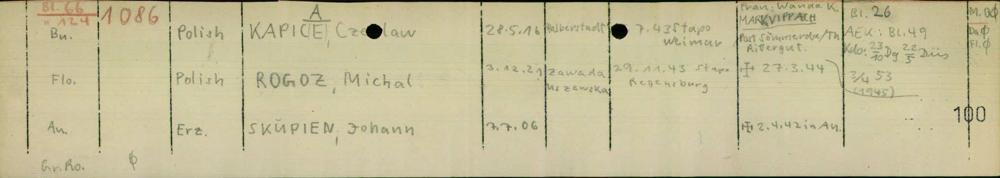 Bl. 66
" 124
1086
Bu.
Polish
A
KAPICE, Cze law
28.5.16
Halberstadt
7.43 Stapo
Weimar
Frau: Wanda K.
MARKVIPPACH
Post Sömmerda/Th
Rittergut.
Bl. 26
AEK: Bl. 49
Flo.
Polish
ROGOZ, Michal
3.12.21
zawada
uszewska
29.11.43 Stapo
Regensburg
27.3.44
3/4 53
(1945)
100
Au.
Erz.
SKUPIEN, Johann
7.7.06
2.4.42 in Au.
Gr. Ro.